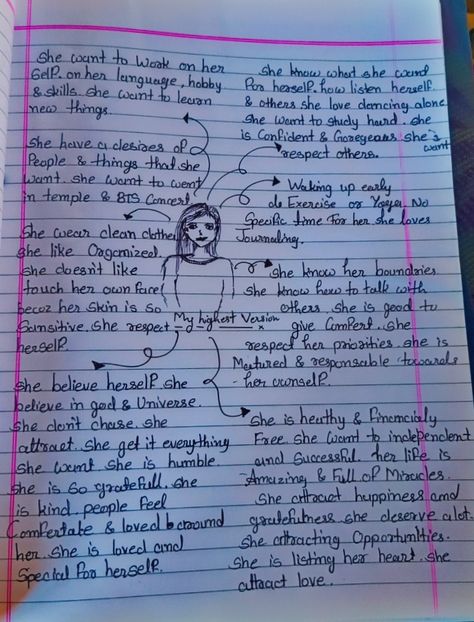 she want to work on her
self. on her language, hobby
& skills. she want to learn
new things.
she know what she want
for herself. how listen herself.
& others she love dancing alone.
she want to study hard. she
is Confident & Goregeous she's
want
respect others.
she have a desires of
People & things that she
want. she want to went
in temple & BTS Concert.
Waking up early
do Exercise or Yoga. No
Specific time for her she loves
Journading.
she wear clean clothes
she like Organized.
she doesn't like
touch her own face
becoz her skin is so
Sensitive. she respect
herself.
My highest Version
she know her boundries
she know how to talk with
others. she is good to
give Comfert. she
respect her priorities. she is
Matured & responsable towards
her ownself.
she believe herself. she
believe in god & Universe.
she don't chase. she
attract. she get it everything
she want she is humble.
she is so gratefull. she
is kind. people feel
Comfertate & loved baround
her. she is loved and
Special for herself.
she is healthy & Financialy
Free. she want to independent
and Successful. her life is
Amazing & Full of Miracles.
she attract happiness and
gratefulness. she deserve alot.
she attracting Opportunities.
she is listing her heart. she
attract love.